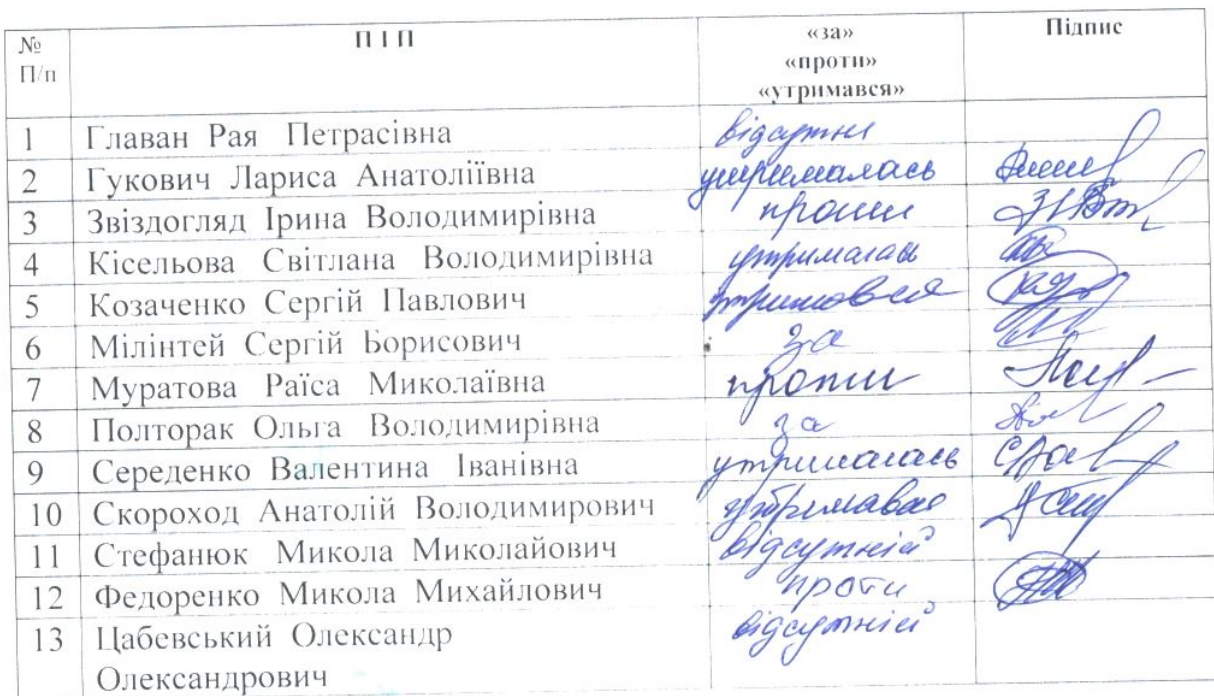 № П І П «за» Підпис
П/п «проти»
«утримався»
1 Главан Рая Петрасівна відсутня
2 Гукович Лариса Анатоліївна утрималась
3 Звіздогляд Ірина Володимирівна проти
4 Кісельова Світлана Володимирівна утрималась
5 Козаченко Сергій Павлович утримався
6 Мілінтей Сергій Борисович за
7 Муратова Раїса Миколаївна проти
8 Полторак Ольга Володимирівна за
9 Середенко Валентина Іванівна утрималась
10 Скороход Анатолій Володимирович утримався
11 Стефанюк Микола Миколайович відсутній
12 Федоренко Микола Михайлович проти
13 Цабевський Олександр відсутній
Олександрович